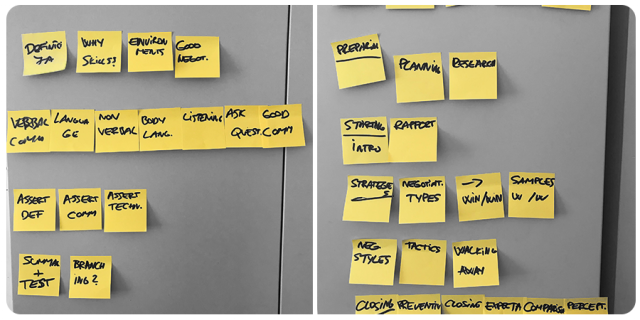 WHY
SKILLS?
ENVIRON
MENTS
GOOD
NEGOT.
VERBAL
COMM
LANGUA
GE
NON
VERBAL
BODY
LANG.
LISTENING
ASK
QUEST.
GOOD
COMM
ASSERT
DEF
ASSERT
COMM
ASSERT
TECHN.
+
TEST
BRANCH
ING?
PLANNING
RESEARCH
STARTING
INTRO
RAPPORT
NEGOTIAT.
TYPES
→
WIN/WIN
SAMPLES
W/W
NEG
STYLES
TACTICS
WALKING
AWAY
CLOSING
CLOSING
PERCEPT.